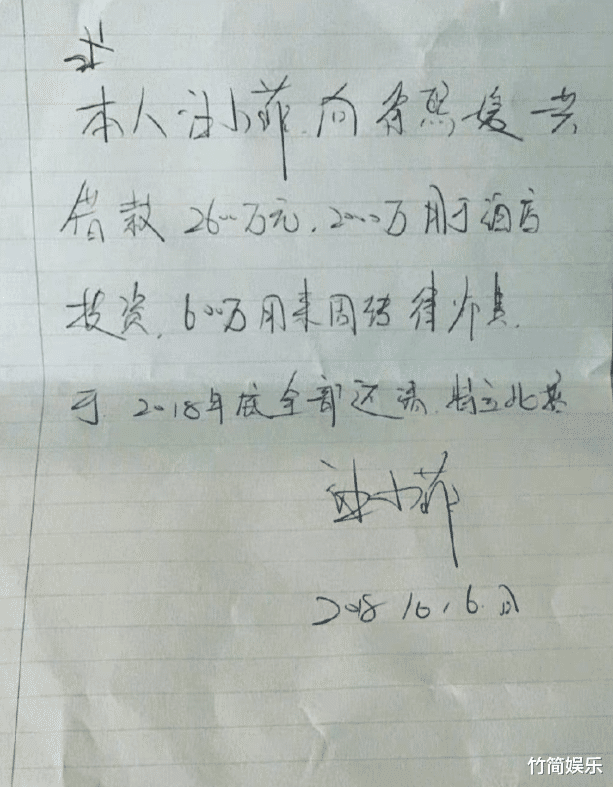 本人汪小菲,向徐熙媛共
借款 2600万元,2000万用于酒店
投资,600万用来周转律师费.
于 2018年底全部还清,特立此据
汪小菲
2018 10,6.日
竹简娱乐